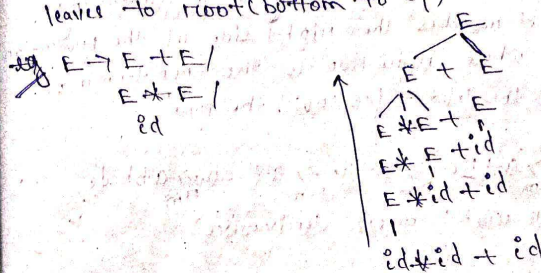 leaves to root (bottom to
eg. E → E + E /
E * E /
id
E
E + E
E * E + E
E * E + id
E * id + id
id * id + id